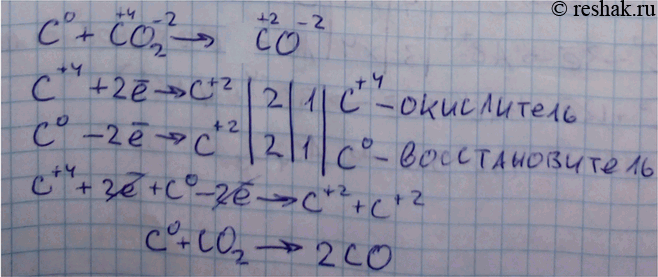 © reshak.ru
C⁰ + C⁺⁴O₂⁻² → C⁺²O⁻²
C⁺⁴ + 2ē → C⁺² | 2 | 1 | C⁺⁴ – окислитель
C⁰ – 2ē → C⁺² | 2 | 1 | C⁰ – восстановитель
C⁺⁴ + 2ē + C⁰ – 2ē → C⁺² + C⁺²
C⁰ + CO₂ → 2CO